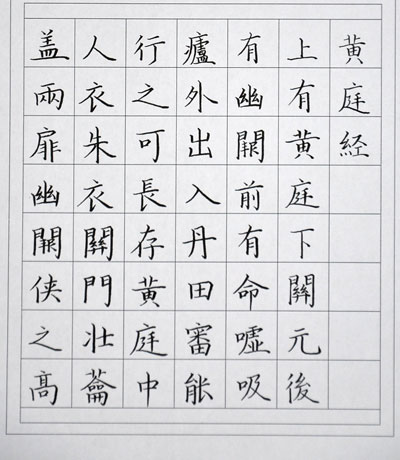 黄庭経
上有黄庭下關元後
有幽闕前有命嘘吸
廬外出入丹田審能
行之可長存黄庭中
人衣朱衣關門壮蘥
盖兩扉幽闕侠之髙